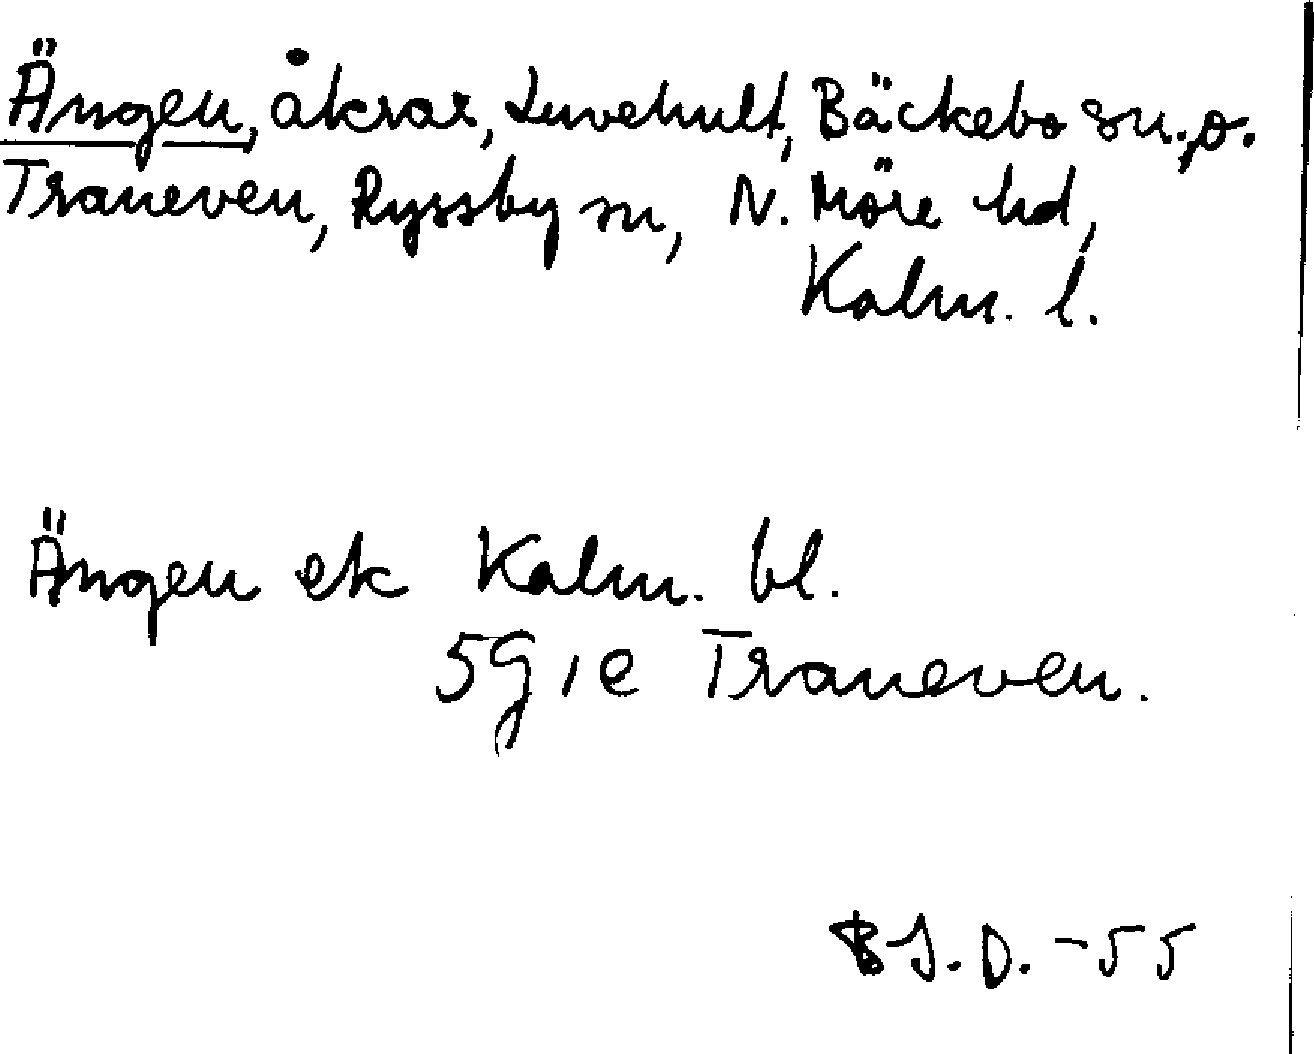 Ängen, åkrar, Luvehult, Bäckebo sn. o.
Traneven, Ryssby sn, N. Möre hd,
Kalm. l.
Ängen ek Kalm. bl.
5g 1e Traneven.
B J. D. -55